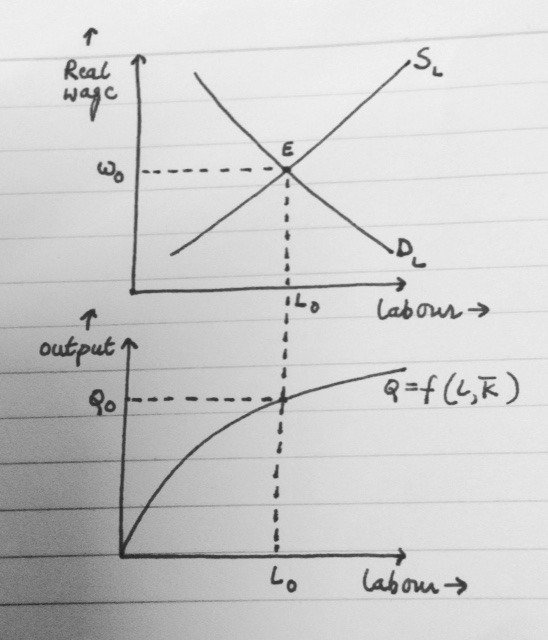 ↑
Real
wage
S_L
E
ω₀
D_L
L₀
labour →
↑
output
Q₀
Q=f(L,K̅)
L₀
labour →